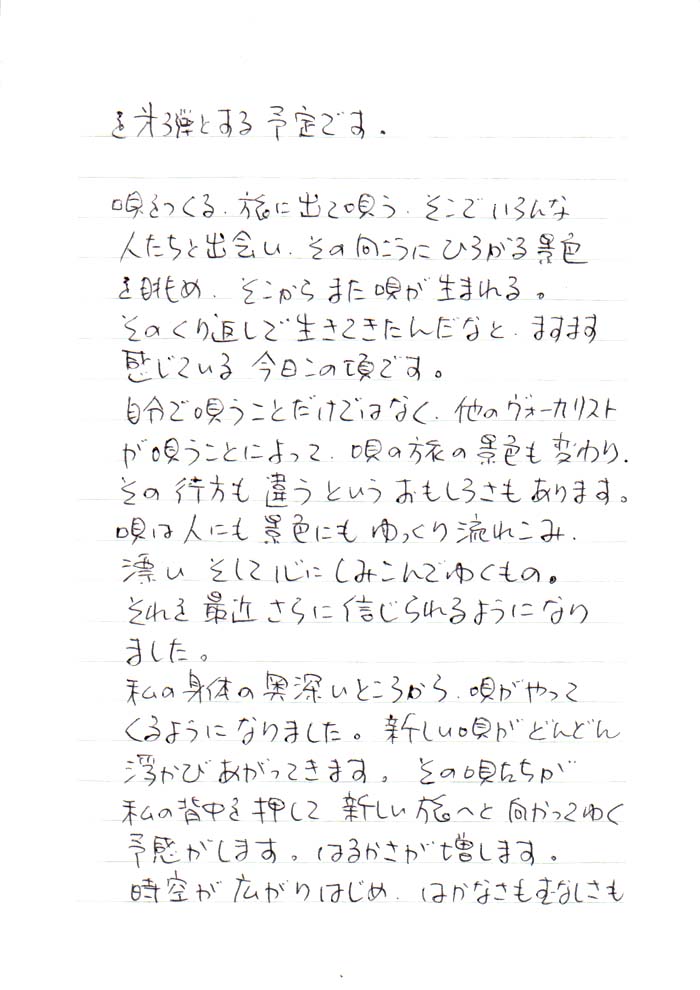 を才3弾とする予定です。
唄をつくる、旅に出て唄う、そこでいろんな
人たちと出会い、その向こうにひろがる景色
を眺め、そこからまた唄が生まれる。
そのくり返しで生きてきたんだなと、ますます
感じている今日この頃です。
自分で唄うことだけではなく、他のヴォーカリスト
が唄うことによって、唄の旅の景色も変わり、
その行方も違うというおもしろさもあります。
唄は人にも景色にもゆっくり流れこみ、
漂い そして心にしみこんでゆくもの。
それを最近さらに信じられるようになり
ました。
私の身体の奥深いところから、唄がやって
くるようになりました。新しい唄がどんどん
浮かびあがってきます。その唄たちが
私の背中を押して新しい旅へと向かってゆく
予感がします。はるかさが増します。
時空が広がりはじめ、はかなさもむなしさも